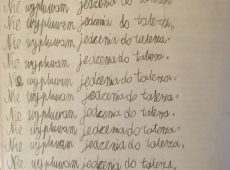 Nie wypluwam jedzenia do talerza.
Nie wypluwam jedzenia do talerza.
Nie wypluwam jedzenia do talerza.
Nie wypluwam jedzenia do talerza.
Nie wypluwam jedzenia do talerza.
Nie wypluwam jedzenia do talerza.
Nie wypluwam jedzenia do talerza.
Nie wypluwam jedzenia do talerza.
Nie wypluwam jedzenia do talerza.